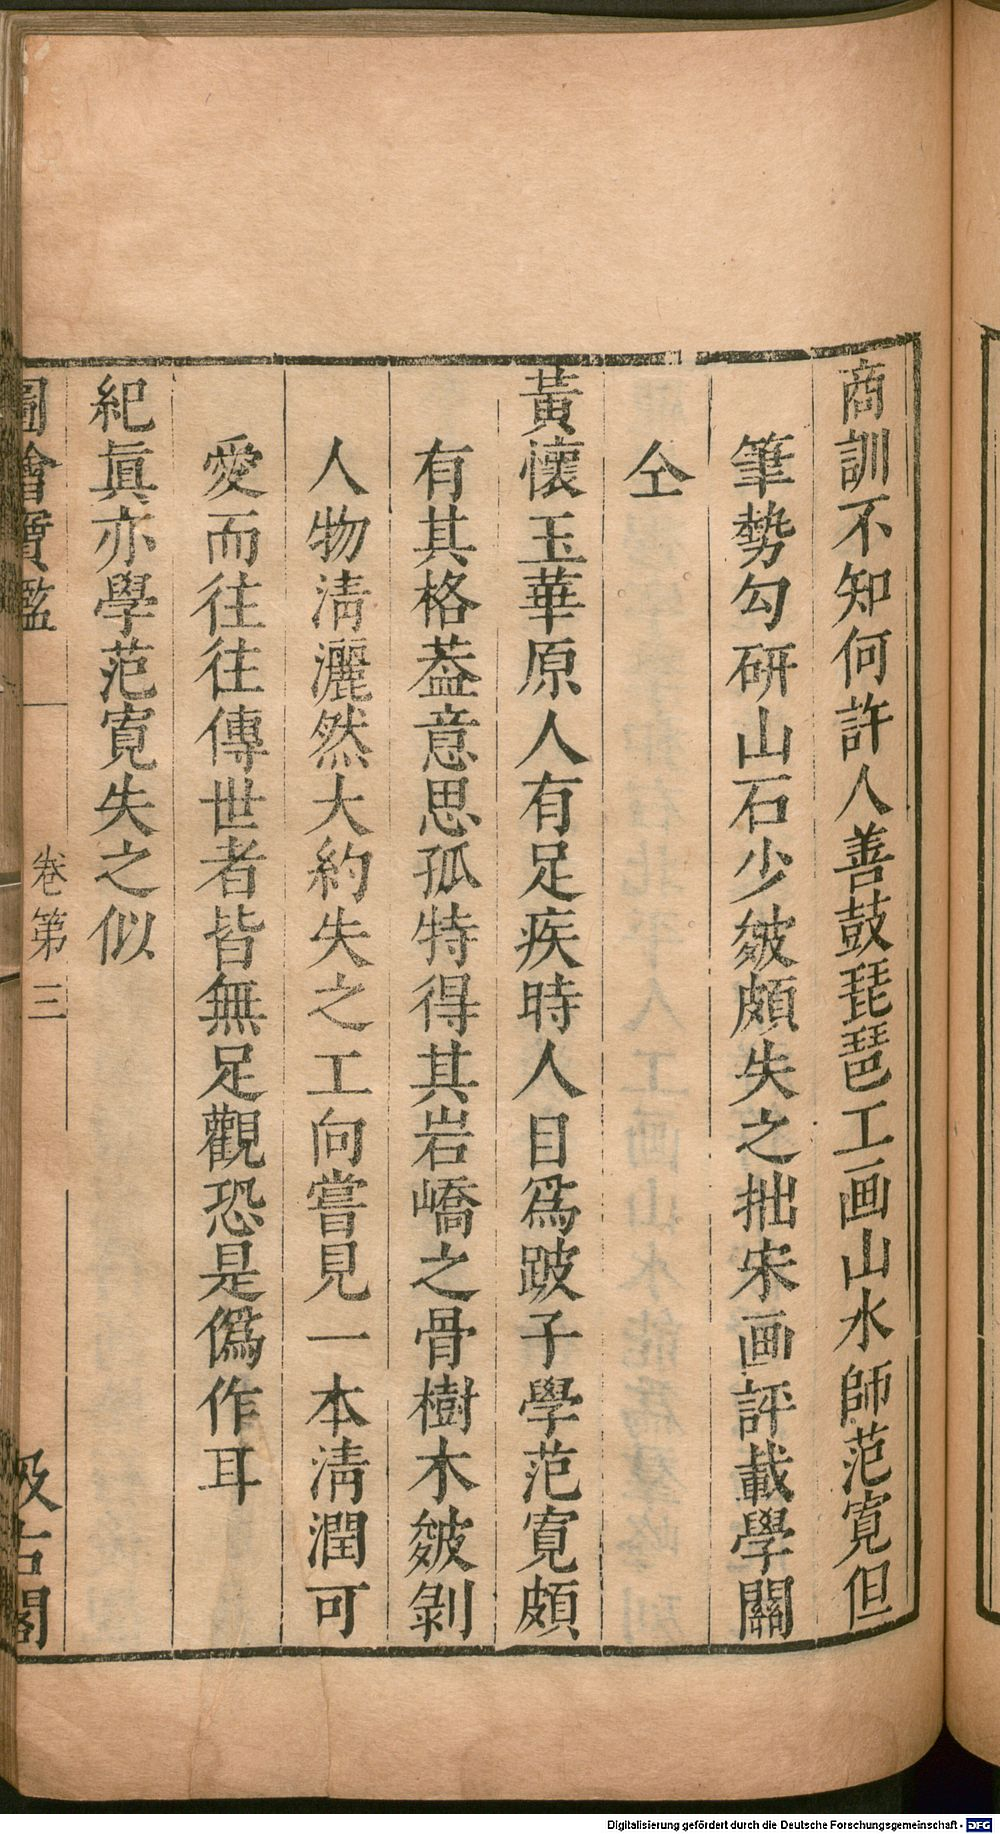 商訓不知何許人善鼓琵琶工画山水師范寛但
筆勢勾研山石少皴頗失之拙宋画評載學關
仝
黃懷玉華原人有足疾時人目爲跛子學范寛頗
有其格葢意思孤特得其岩嶠之骨樹木皴剝
人物淸灑然大約失之工向嘗見一本淸潤可
愛而往往傳世者皆無足觀恐是僞作耳
紀眞亦學范寛失之似
圖繪寶鑑
卷第三
汲古閣
Digitalisierung gefördert durch die Deutsche Forschungsgemeinschaft - DFG